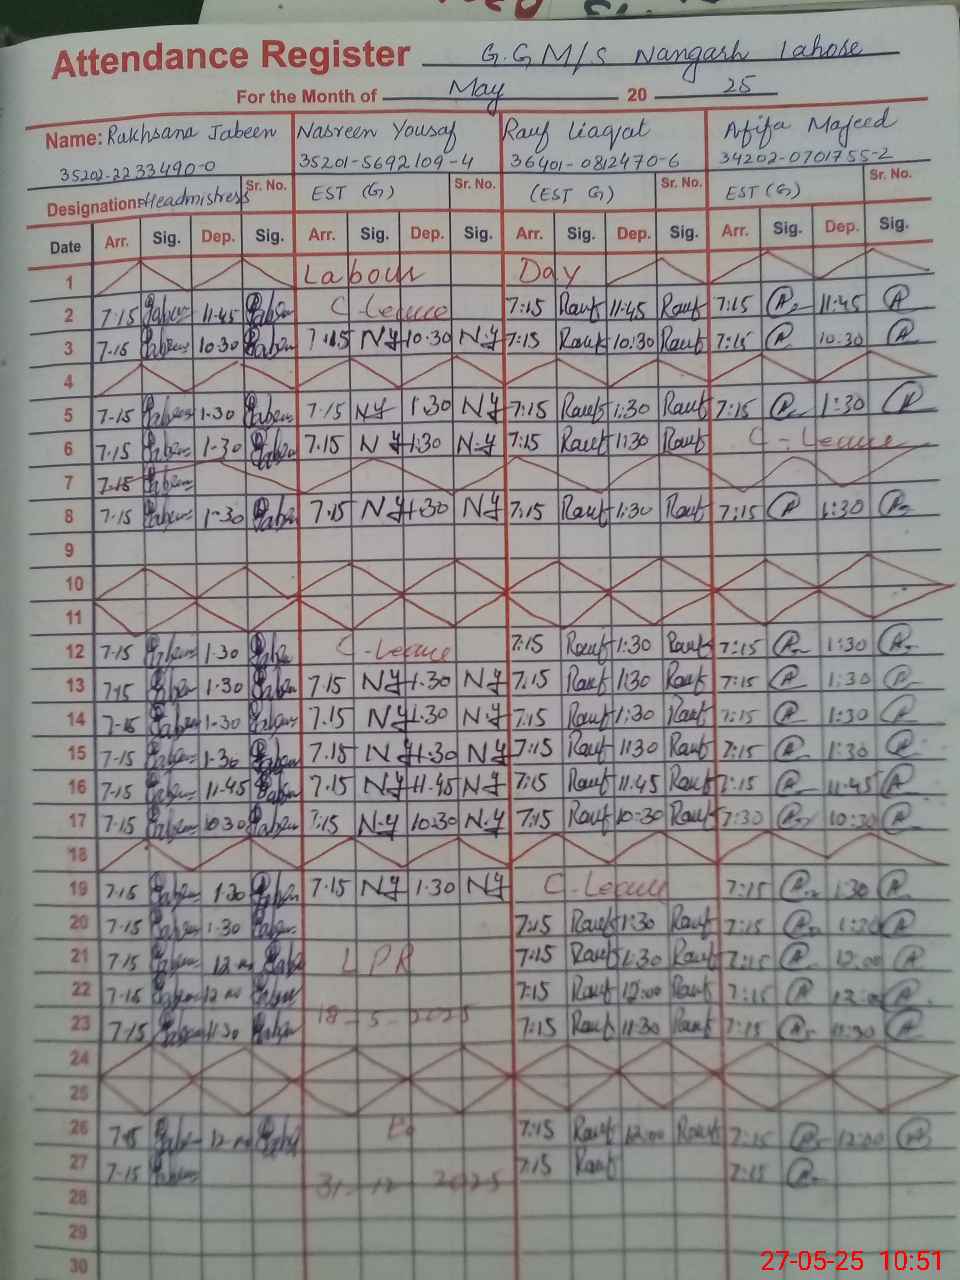 Attendance Register G.G M/S Nangash Lahore
For the Month of May 20 25
Name: Rakhsana Jabeen Nasreen Yousaf Rauf liaqat Afifa Majeed
35202-2233490-0 35201-5692109-4 36401-0812470-6 34202-0701755-2
Designation: Headmistress Sr. No. EST (G) Sr. No. (EST G) Sr. No. EST (G) Sr. No.
Date Arr. Sig. Dep. Sig. Arr. Sig. Dep. Sig. Arr. Sig. Dep. Sig. Arr. Sig. Dep. Sig.
1 Labour Day
2 7-15 Jabeen 11-45 Jabeen C-Leave 7:15 Rauf 11:45 Rauf 7:15 A 11:45 A
3 7-15 Jabeen 10.30 Jabeen 7.15 NY 10.30 N.Y 7:15 Rauf 10:30 Rauf 7:15 A 10.30 A
4
5 7-15 Jabeen 1-30 Jabeen 7.15 NY 1.30 NY 7:15 Rauf 1:30 Rauf 7:15 A 1:30 A
6 7.15 Jabeen 1-30 Jabeen 7.15 NY 1:30 N.Y 7:15 Rauf 1:30 Rauf C-Leave
7 7-15 Jabeen
8 7-15 Jabeen 1-30 Jabeen 7.15 NY 1.30 NY 7:15 Rauf 1:30 Rauf 7:15 A 1:30 A
9
10
11
12 7-15 Jabeen 1-30 Jabeen C-Leave 7:15 Rauf 1:30 Rauf 7:15 A 1:30 A
13 7-15 Jabeen 1-30 Jabeen 7.15 NY 1.30 NY 7:15 Rauf 1:30 Rauf 7:15 A 1:30 A
14 7-15 Jabeen 1-30 Jabeen 7.15 NY 1.30 N.Y 7:15 Rauf 1:30 Rauf 7:15 A 1:30 A
15 7-15 Jabeen 1-30 Jabeen 7.15 NY 1.30 NY 7:15 Rauf 1:30 Rauf 7:15 A 1:30 A
16 7-15 Jabeen 11-45 Jabeen 7.15 NY 11.45 NY 7:15 Rauf 11.45 Rauf 7:15 A 11.45 A
17 7-15 Jabeen 10.30 Jabeen 7:15 N.Y 10:30 N.Y 7:15 Rauf 10:30 Rauf 7:30 A 10:30 A
18
19 7-15 Jabeen 1.30 Jabeen 7.15 NY 1.30 NY C-Leave 7:15 A 1:30 A
20 7-15 Jabeen 1-30 Jabeen 7:15 Rauf 1:30 Rauf 7:15 A 1:30 A
21 7-15 Jabeen 12 Jabeen LPR 7:15 Rauf 1:30 Rauf 7:15 A 12:00 A
22 7-15 Jabeen 12 Jabeen 7:15 Rauf 12:00 Rauf 7:15 A 12:00 A
23 7-15 Jabeen 11.30 Jabeen 18-5-2025 7:15 Rauf 11:30 Rauf 7:15 A 11:30 A
24
25
26 7-15 Jabeen 12 Jabeen 7:15 Rauf 12:00 Rauf 7:15 A 12:00 A
27 7-15 Jabeen 31-12-2025 7:15 Rauf 7:15 A
28
29
30
27-05-25 10:51